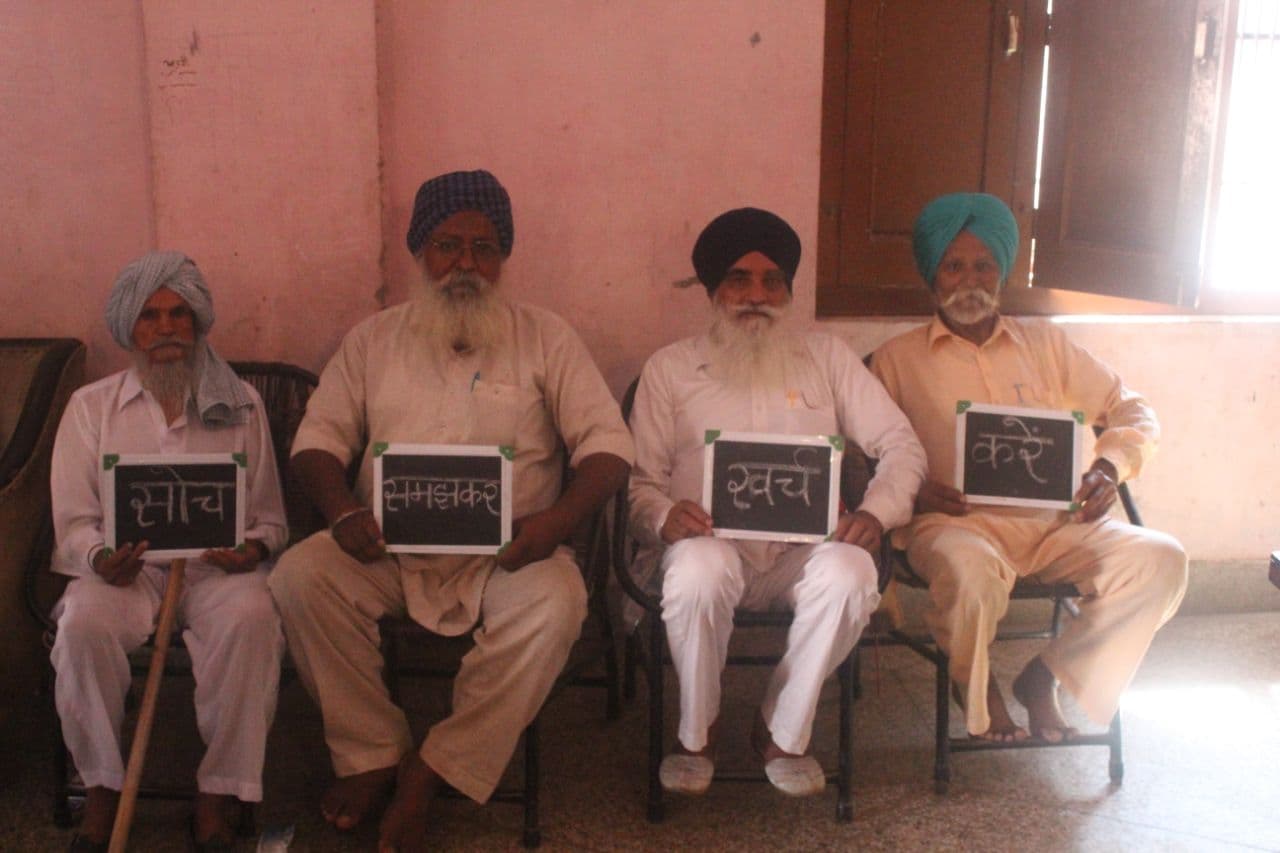 सोच
समझकर
ख़र्च
करें